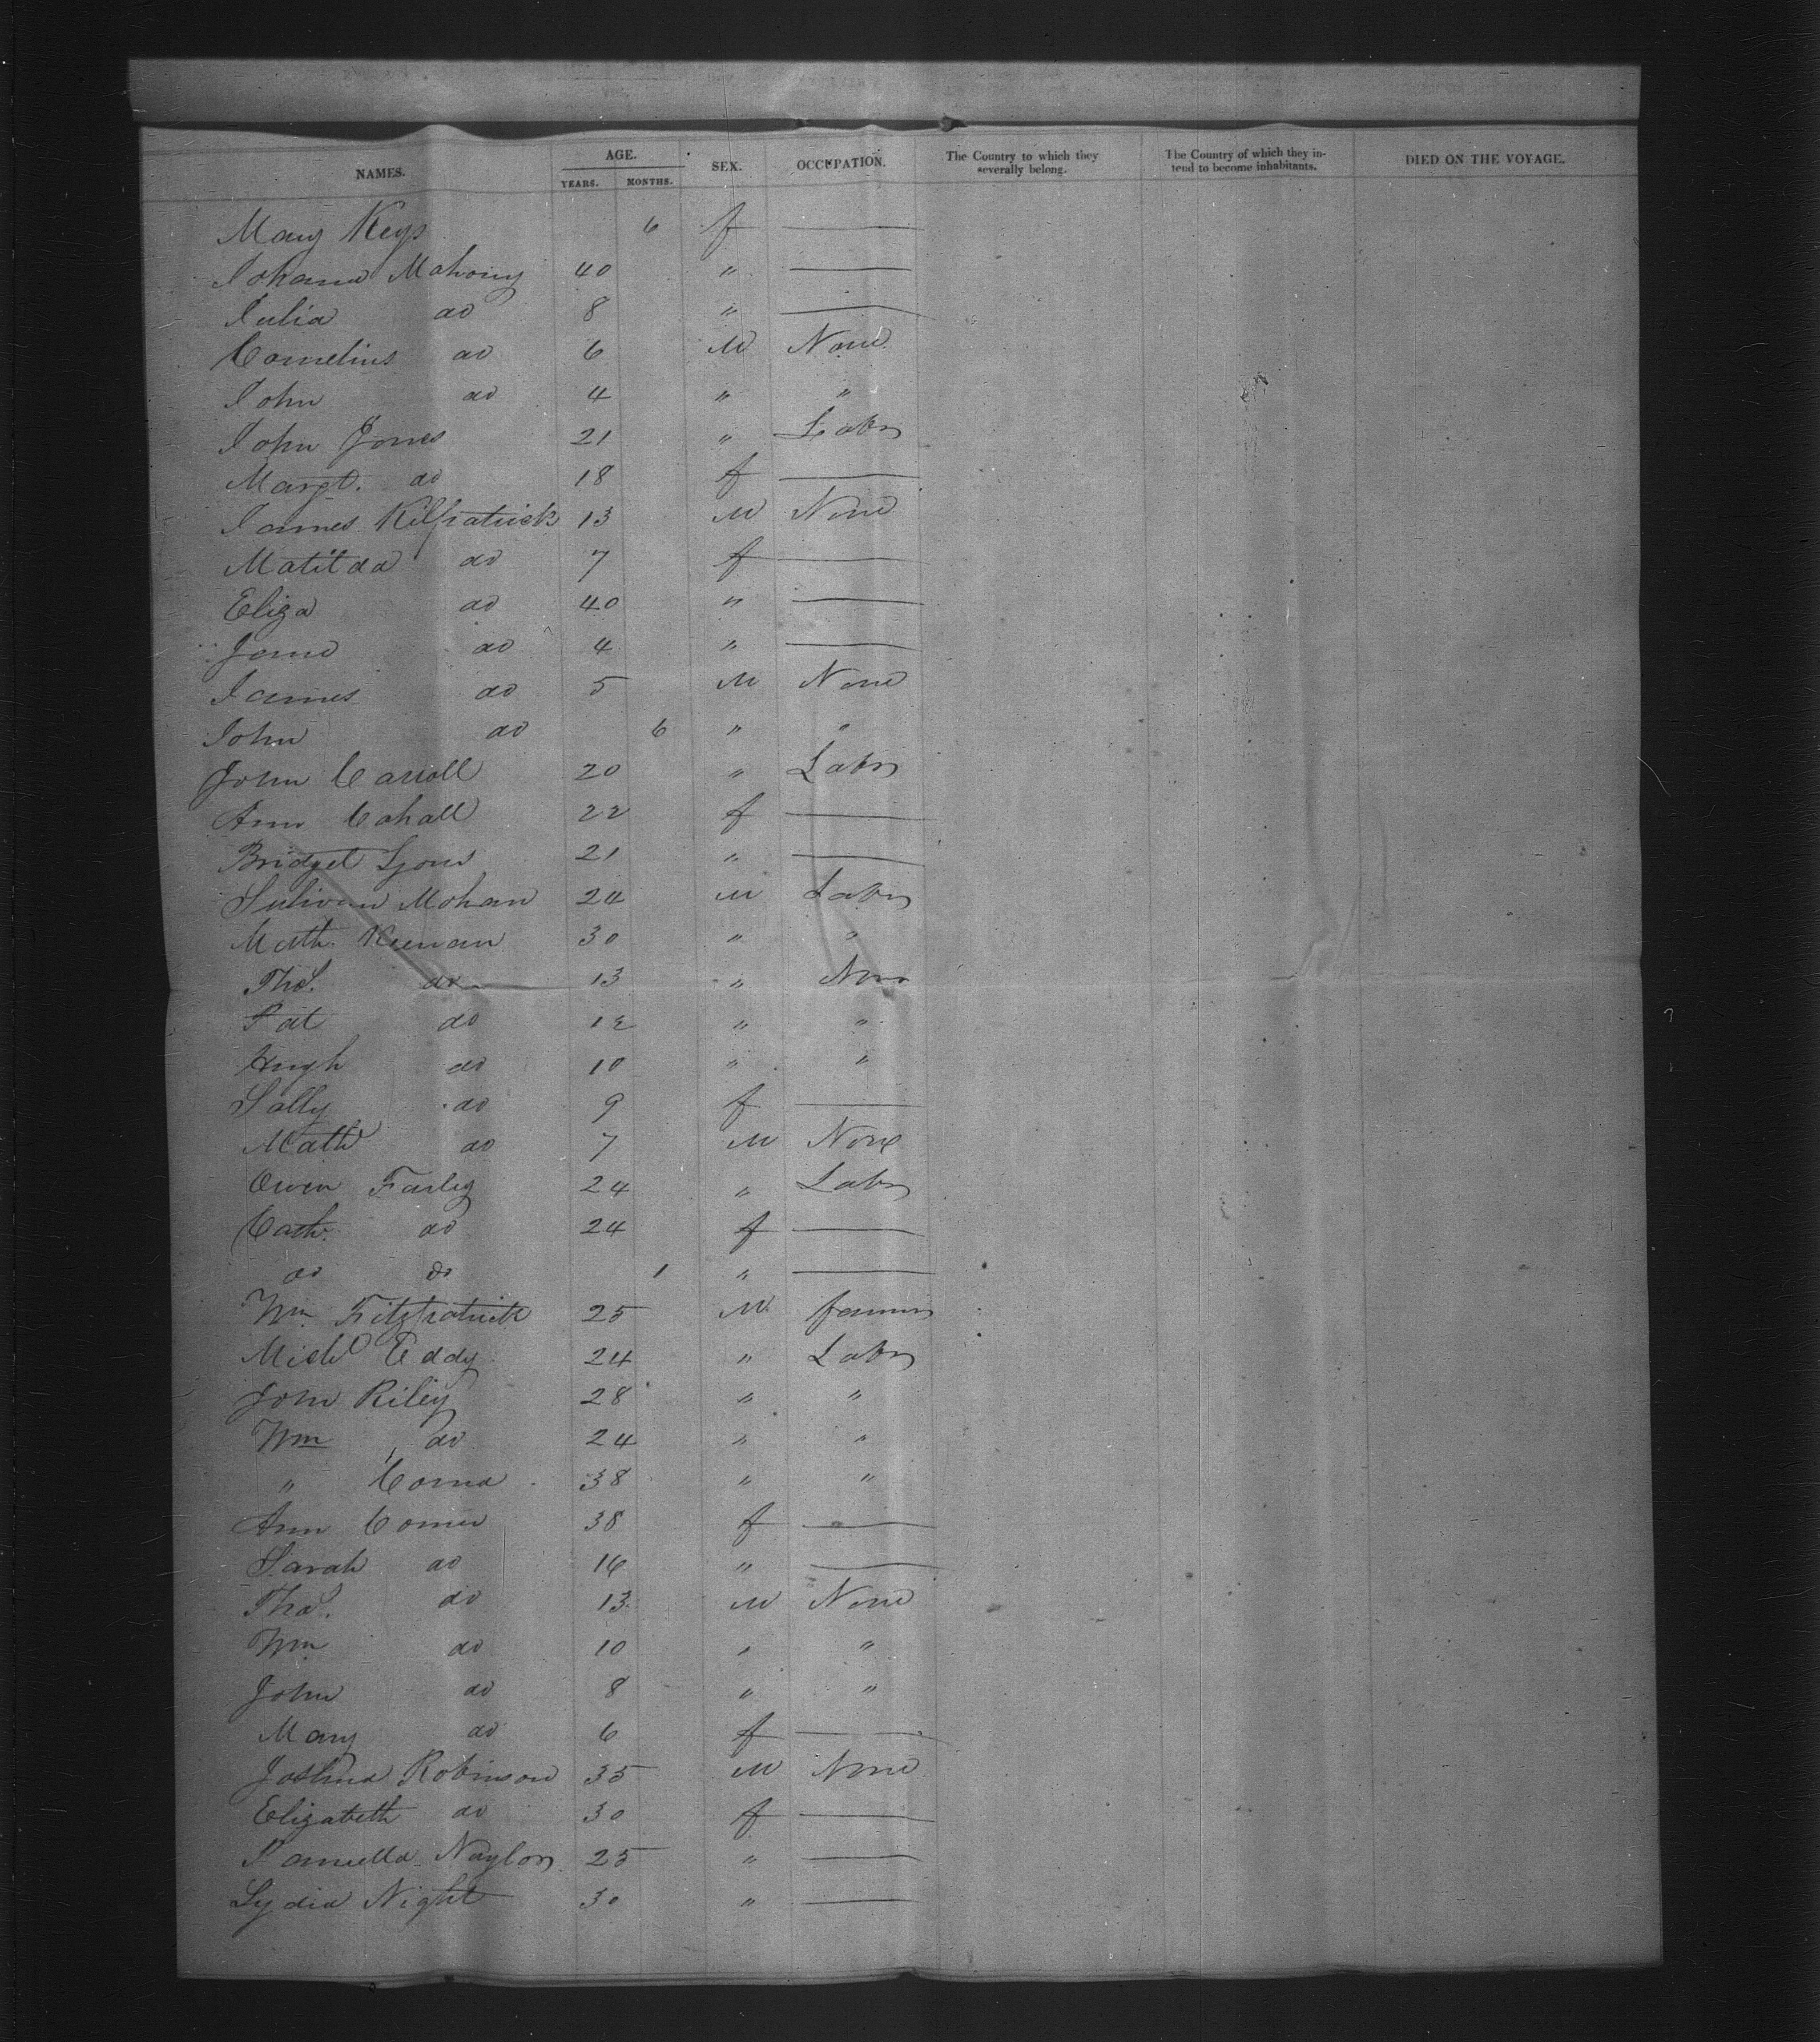 NAMES. AGE. SEX. OCCUPATION. The Country to which they severally belong. The Country of which they intend to become inhabitants. DIED ON THE VOYAGE.
YEARS. MONTHS.
Mary Keys 6 f —
Johana Mahony 40 " —
Julia do 8 " —
Cornelius do 6 M None
John do 4 " "
John Jones 21 " Labr
Margt. do 18 f —
James Kilpatrick 13 M None
Matilda do 7 f —
Eliza do 40 " —
Jane do 4 " —
James do 5 M None
John do 6 " "
John Carroll 20 " Labr
Ann Cahall 22 f —
Bridget Lyons 21 " —
Sulivan Mohan 24 M Labr
Math. Keenan 30 " "
Thos. do 13 " None
Pat do 12 " "
Hugh do 10 " "
Sally do 9 f —
Math do 7 M None
Owen Farley 24 " Labr
Cath. do 24 f —
do do 1 " —
Wm. Fitzpatrick 25 M farmer
Michl Eddy 24 " Labr
John Riley 28 " "
Wm do 24 " "
" 38 " "
Ann Comer 38 f —
Sarah do 16 " —
Thos. do 13 M None
Wm do 10 " "
John do 8 " "
Mary do 6 f —
Joshua Robinson 35 M None
Elizabeth do 30 f —
Naylor 25 " —
Lydia Night 30 " —